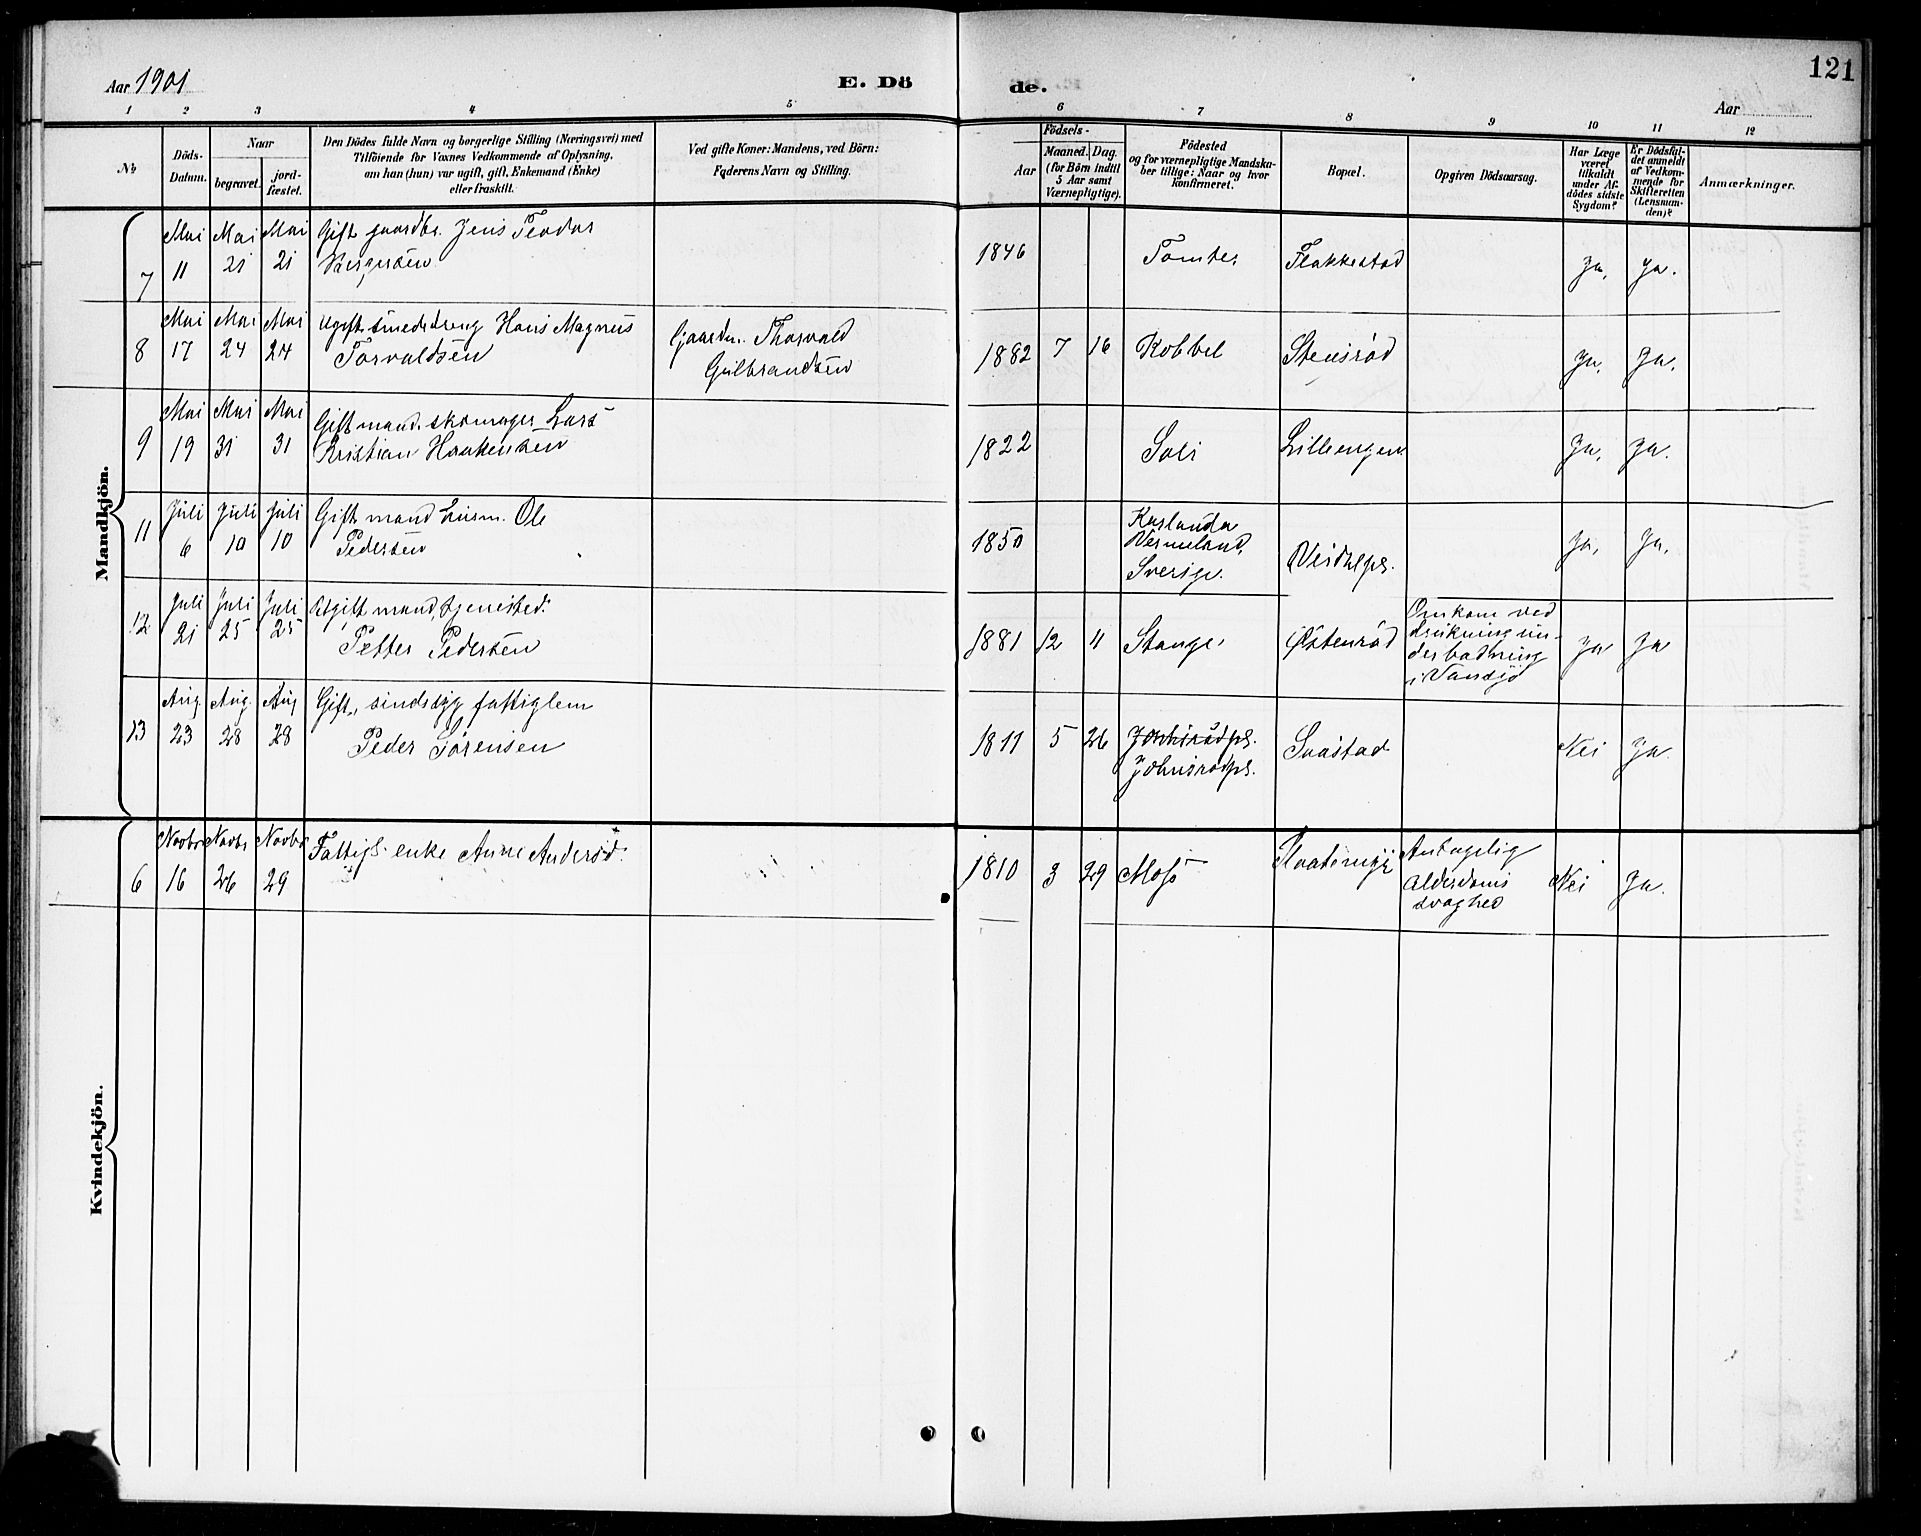 Aar 1901
E. Dö
de.
Aar
121
1 2 3 4 5 6 7 8 9 10 11 12
No
Döds-Datum.
Naar
begravet.
jord-fæstet.
Den Dödes fulde Navn og borgerlige Stilling (Næringsvei) med
Tilföiende for Voxnes Vedkommende af Oplysning,
om han (hun) var ugift, gift, Enkemand (Enke)
eller fraskilt.
Ved gifte Koner: Mandens, ved Börn:
Faderens Navn og Stilling.
Födsels-
Aar
Maaned. Dag.
(for Börn indtil
5 Aar samt
Værnepligtige).
Födested
og for værnepligtige Mandska-
ber tillige: Naar og hvor
konfirmeret.
Bopæl.
Opgiven Dödsaarsag.
Har Læge
været
tilkaldt
under Af-
dödes sidste
Sygdom?
Er Dödsfal-
det anmeldt
af Vedkom-
mende for
Skifteretten
(Lensman-
den)?
Anmærkninger.
Mandkjön.
7 Mai 11 Mai 21 Mai 21 Gift gaardbr. Jens Teodor
Birgersen 1846 Tomter Flakkestad Ja. Ja.
8 Mai 17 Mai 24 Mai 24 Ugift smededreng Hans Magnus
Torvaldsen Gaardm. Thorvald
Gulbrandsen 1882 7 16 Kobbel Stensrød Ja. Ja.
9 Mai 19 Mai 31 Mai 31 Gift mand skomager Lars
Kristian Haakensen 1822 Soli Lilleengen Ja. Ja.
11 Juli 6 Juli 10 Juli 10 Gift mand Husm. Ole
Pedersen 1850
Vermeland,
Sverige. Ja. Ja.
12 Juli 21 Juli 25 Juli 25 Ugift mand, tjenisted:
Petter Pedersen 1881 12 11 Stange Østenrød Omkom ved
drukning un-
der badning
i Vansjø Ja Ja
13 Aug. 23 Aug. 28 Aug 28 Gift, sindssyg fattiglem
Peder Sørensen 1811 5 26
Johnsrødpl. Saastad Nei Ja.
Kvindekjön.
6 Novbr 16 Novbr 26 Novbr 29 Fattigl. enke Anne Andersd. 1810 3 29 Moss Antagelig
Alderdoms
svaghed Nei Ja.